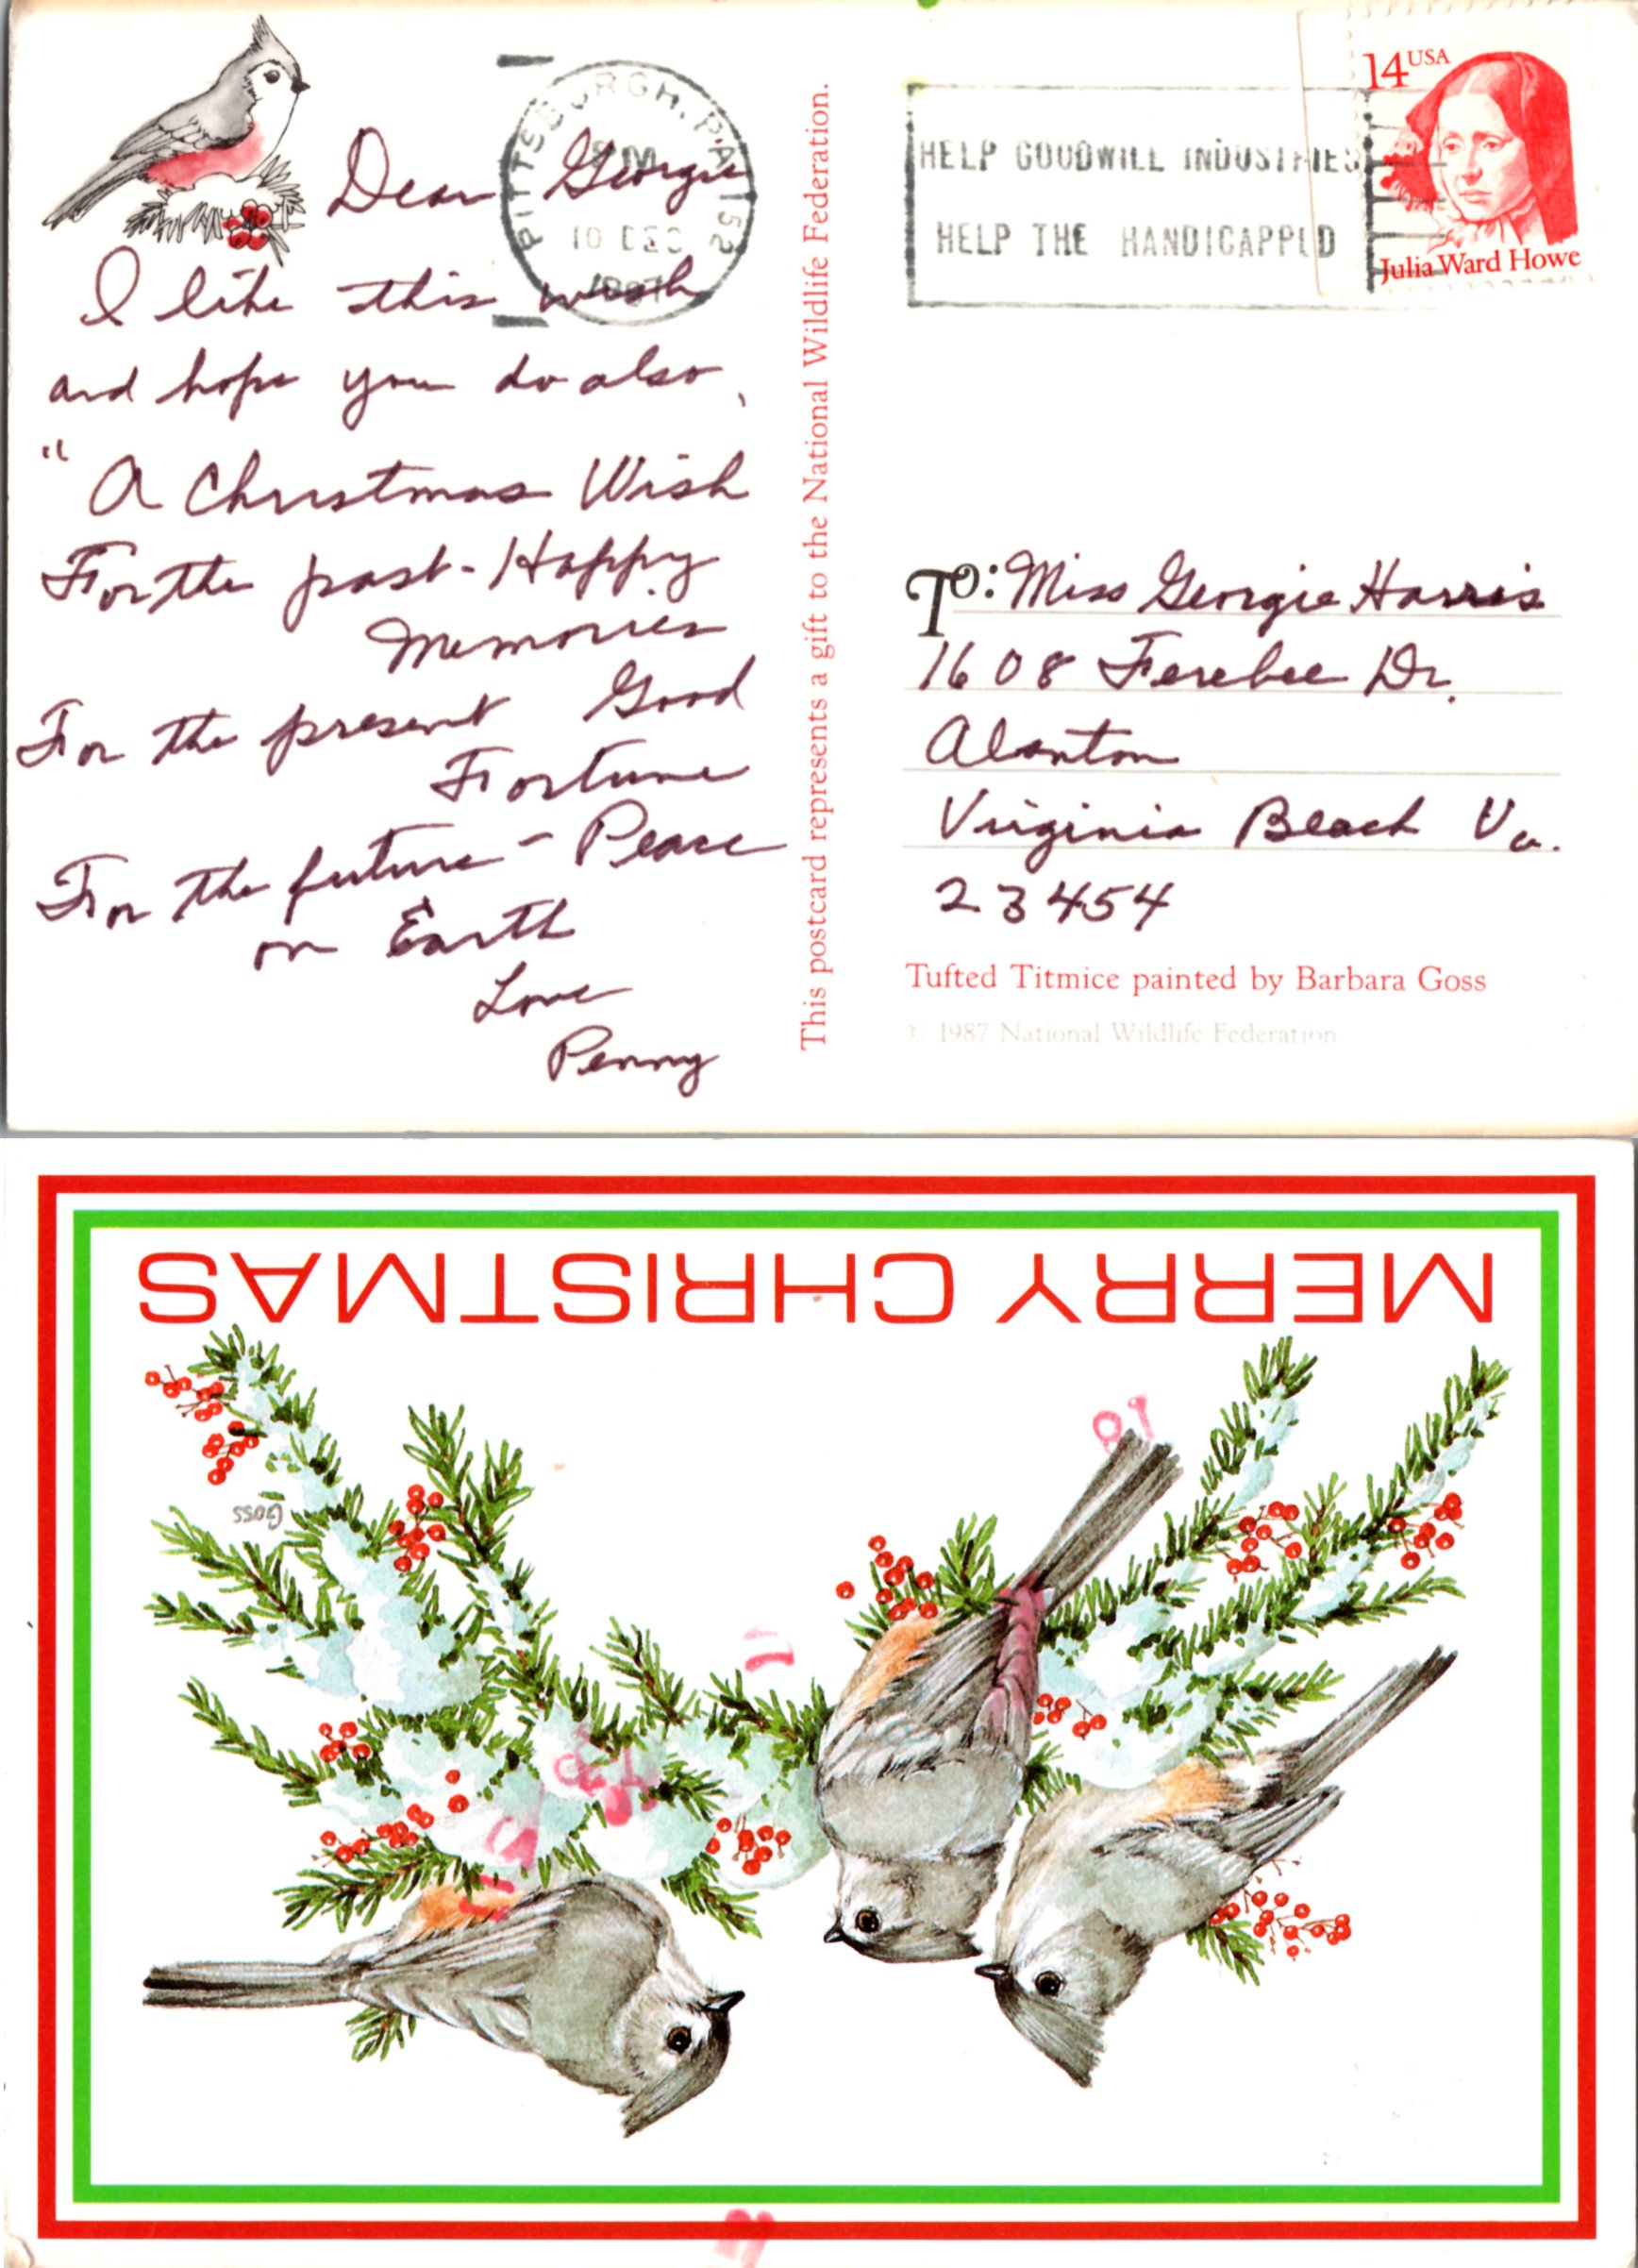 Dear Georgie
I like this wish
and hope you do also,
"A Christmas Wish
For the past - Happy
Memories
For the present Good
Fortune
For the future - Peace
on Earth
Love
Penny
PITTSBURGH, PA 152
PM
10 DEC
1987
This postcard represents a gift to the National Wildlife Federation.
HELP GOODWILL INDUSTRIES
HELP THE HANDICAPPED
14 USA
Julia Ward Howe
To: Miss Georgie Harris
1608 Ferebee Dr.
Alanton
Virginia Beach Va.
23454
Tufted Titmice painted by Barbara Goss
© 1987 National Wildlife Federation
MERRY CHRISTMAS
Goss